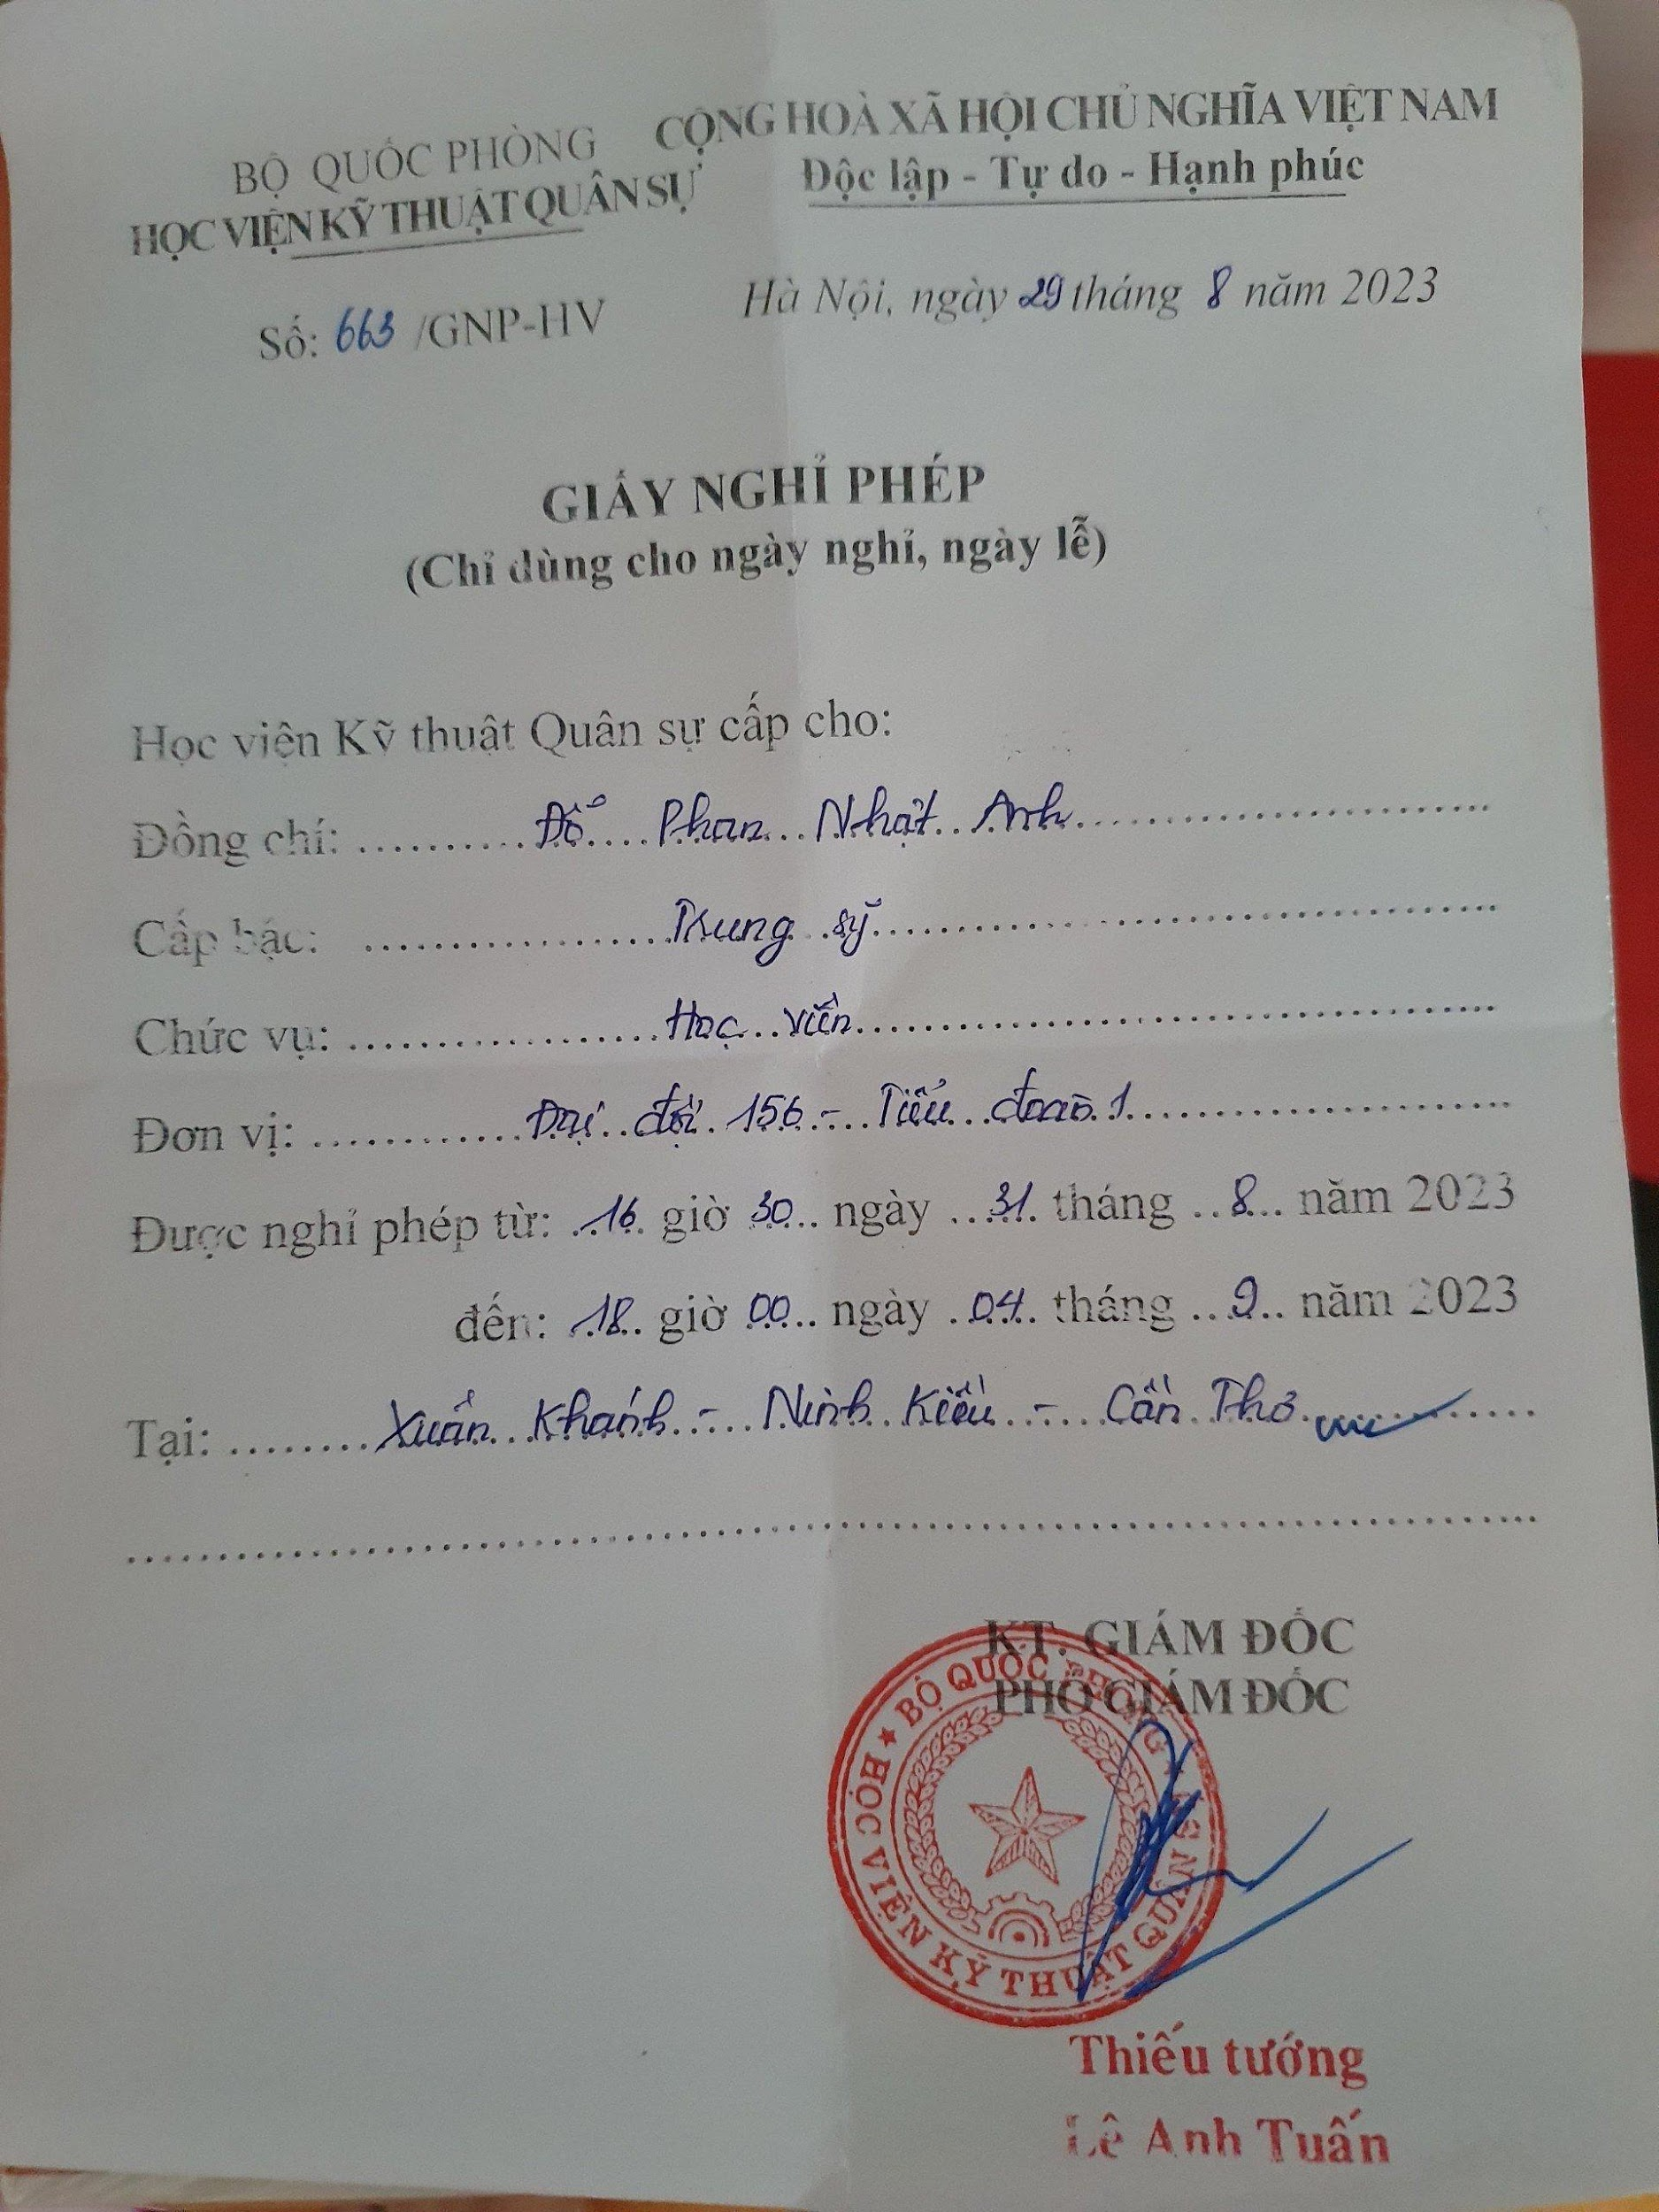 BỘ QUỐC PHÒNG
HỌC VIỆN KỸ THUẬT QUÂN SỰ
CỘNG HOÀ XÃ HỘI CHỦ NGHĨA VIỆT NAM
Độc lập - Tự do - Hạnh phúc
Số: 663 /GNP-HV
Hà Nội, ngày 29 tháng 8 năm 2023
GIẤY NGHỈ PHÉP
(Chỉ dùng cho ngày nghỉ, ngày lễ)
Học viện Kỹ thuật Quân sự cấp cho:
Đồng chí: Đỗ Phan Nhật Anh
Cấp bậc: Trung sỹ
Chức vụ: Học viên
Đơn vị: Đại đội 156 - Tiểu đoàn 1
Được nghỉ phép từ: 16 giờ 30 ngày 31 tháng 8 năm 2023
đến: 18 giờ 00 ngày 04 tháng 9 năm 2023
Tại: Xuân Khánh - Ninh Kiều - Cần Thơ
KT. GIÁM ĐỐC
PHÓ GIÁM ĐỐC
BỘ QUỐC PHÒNG
HỌC VIỆN KỸ THUẬT QUÂN SỰ
Thiếu tướng
Lê Anh Tuấn